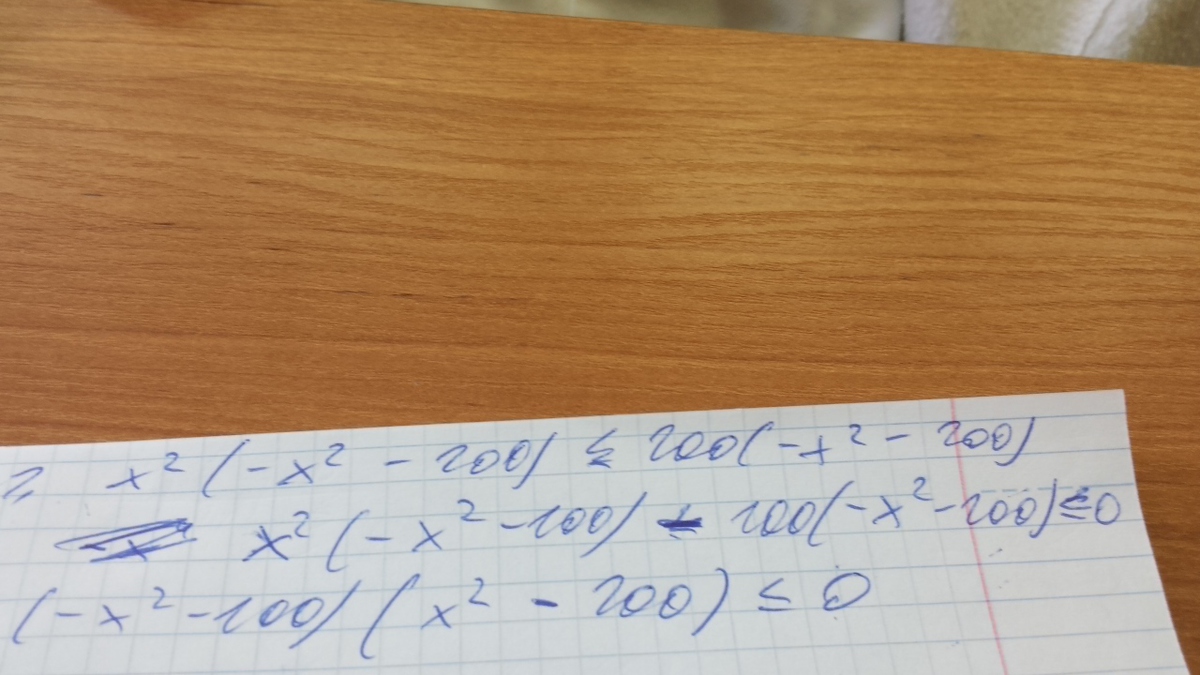 2. x² (-x² - 100) ≤ 100(-x² - 100)
x² (-x² - 100) - 100(-x² - 100) ≤ 0
(-x² - 100) (x² - 100) ≤ 0